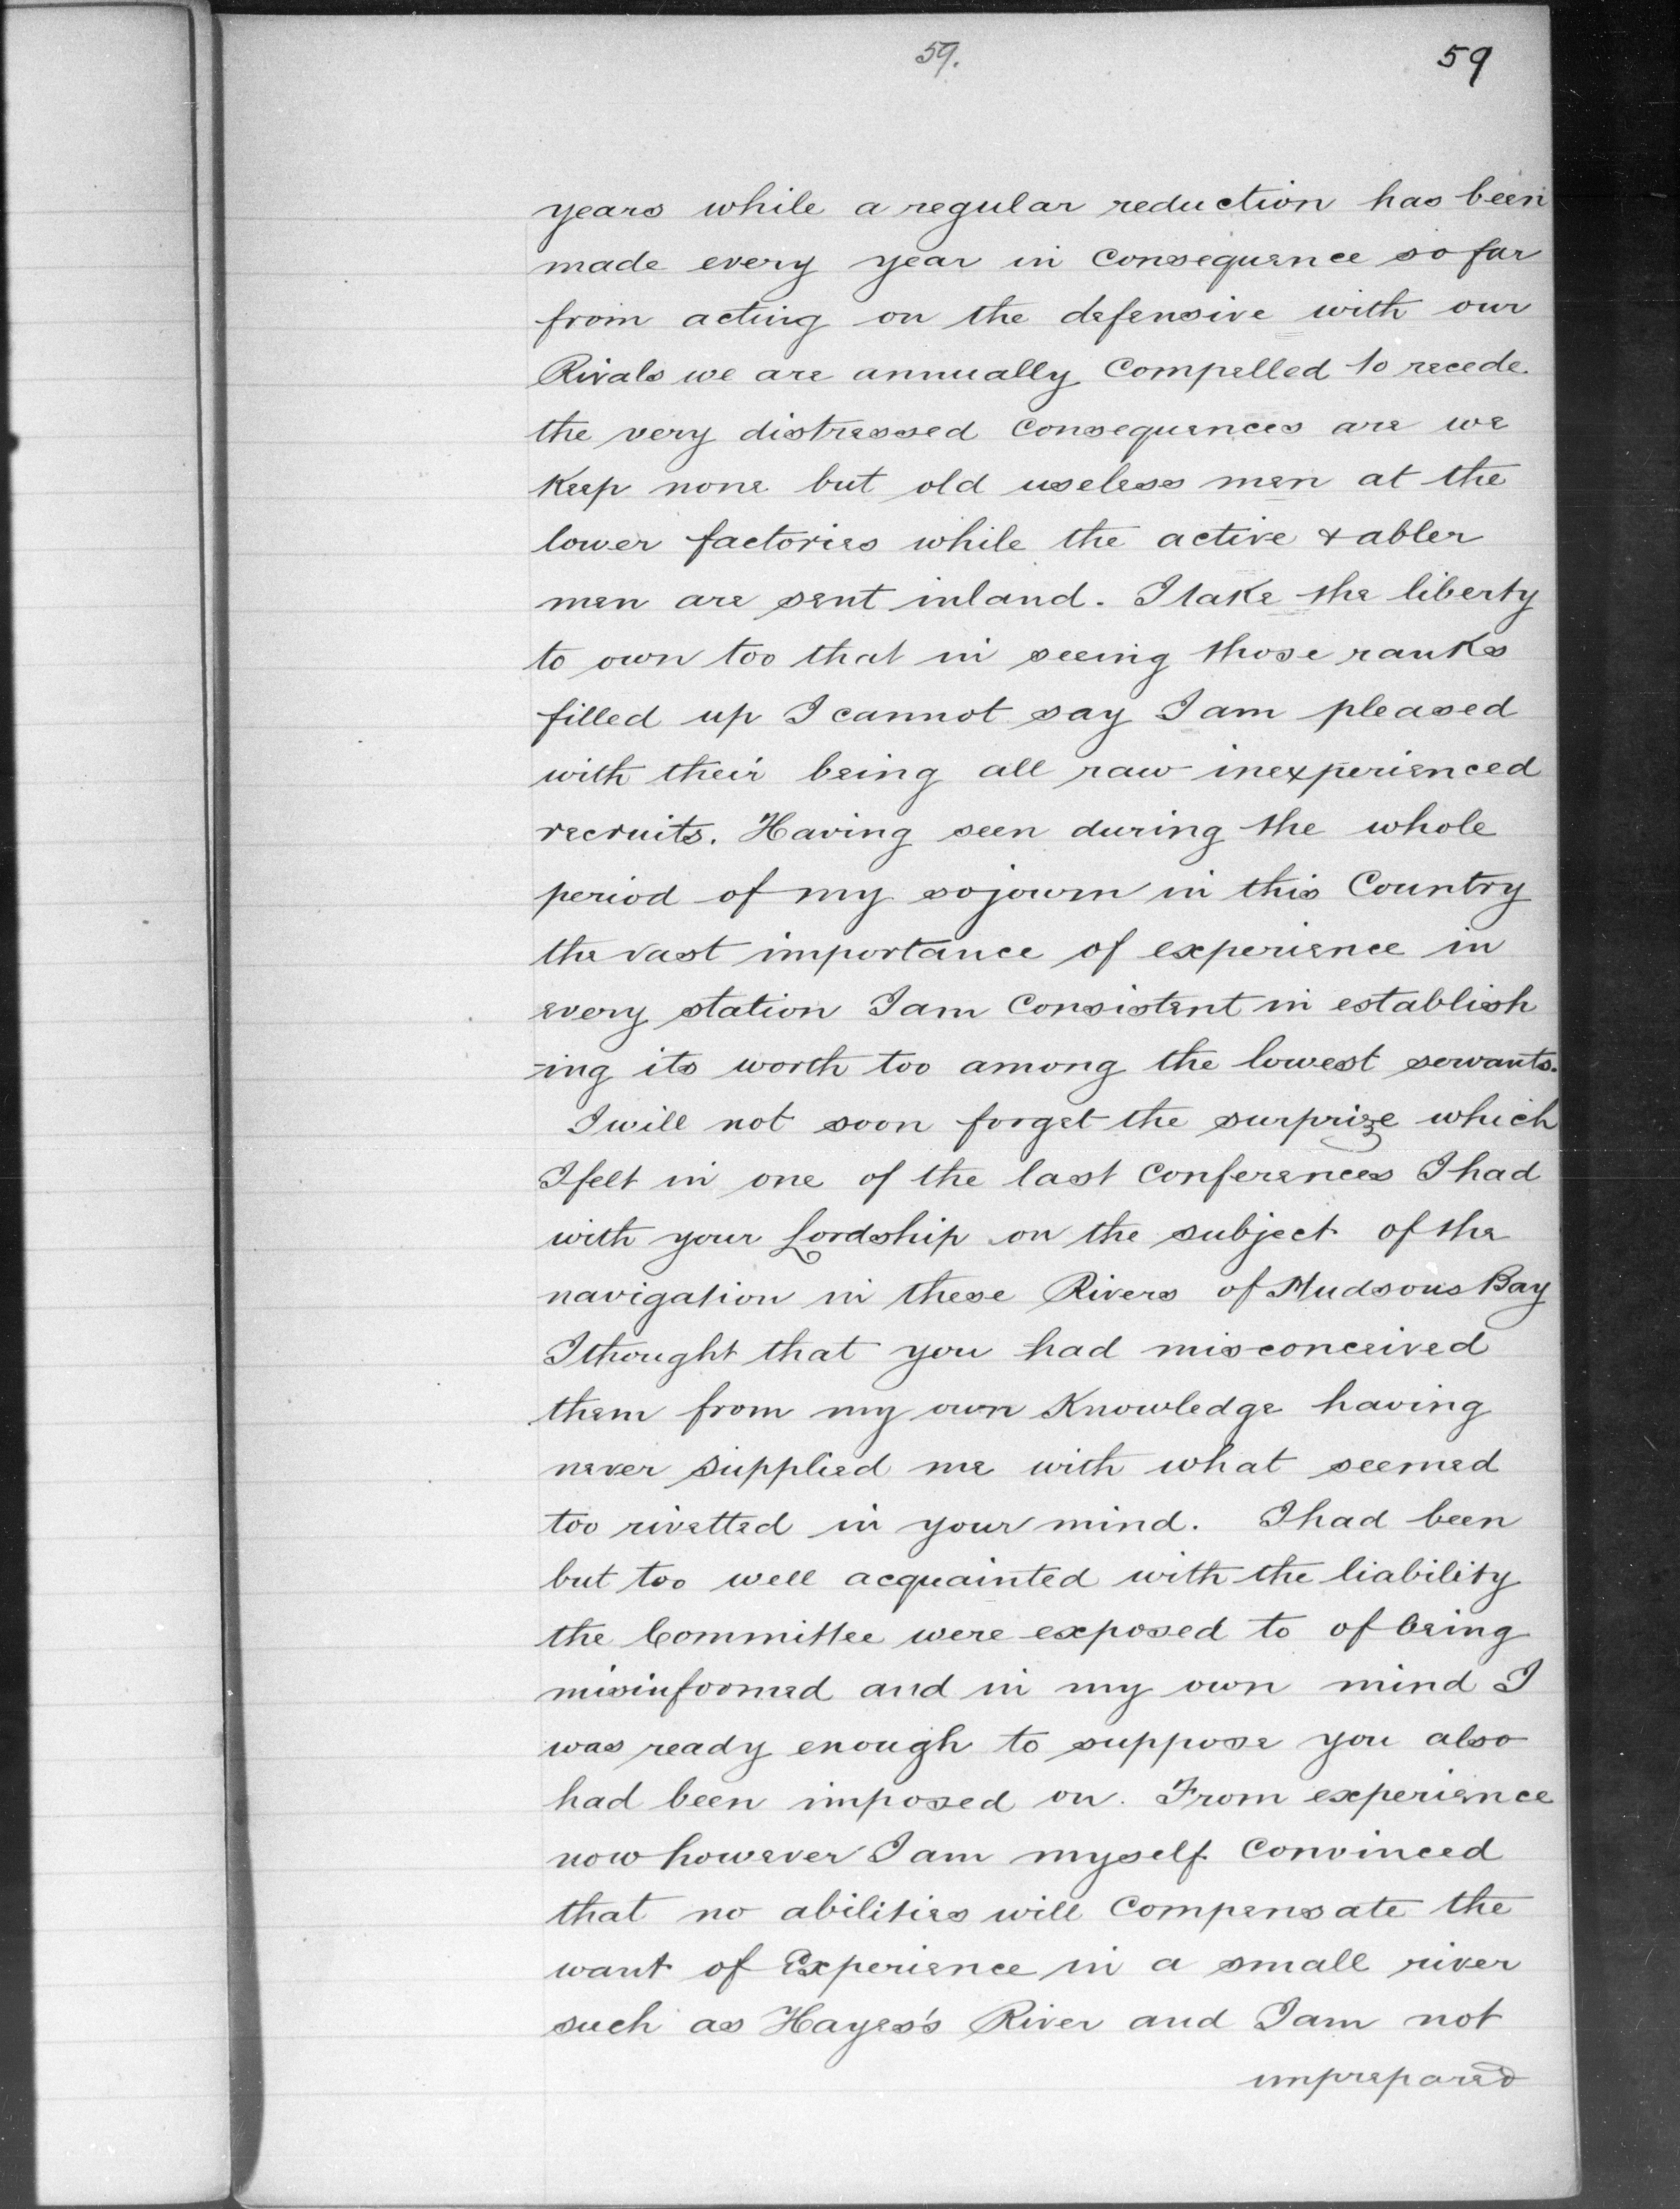 59. 59
years while a regular reduction has been
made every year in Consequence so far
from acting on the defensive with our
Rivals we are annually Compelled to recede
the very distressed Consequences are we
Keep none but old useless men at the
lower factories while the active & abler
men are sent inland. I take the liberty
to own too that in seeing those ranks
filled up I cannot say I am pleased
with their being all raw inexperienced
recruits. Having seen during the whole
period of my sojourn in this Country
the vast importance of experience in
every station I am Consistent in establish
-ing its worth too among the lowest servants.
I will not soon forget the surprize which
I felt in one of the last Conferences I had
with your Lordship on the subject of the
navigation in these Rivers of Hudsons Bay
I thought that you had misconceived
them from my own Knowledge having
never supplied me with what seemed
too rivetted in your mind. I had been
but too well acquainted with the liability
the Committee were exposed to of being
misinformed and in my own mind I
was ready enough to suppose you also
had been imposed on. From experience
now however I am myself Convinced
that no abilities will Compensate the
want of Experience in a small river
such as Hayes's River and I am not
unprepared